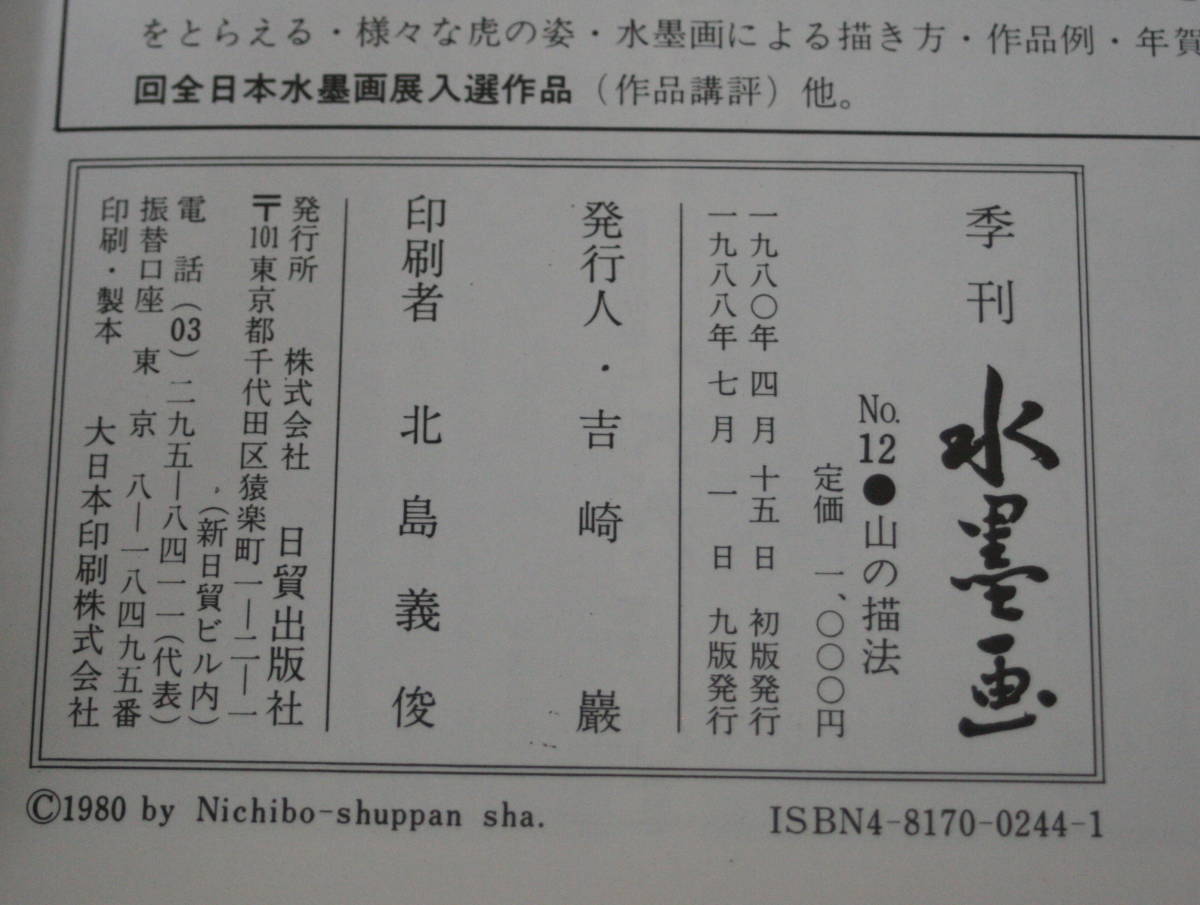 をとらえる・様々な虎の姿・水墨画による描き方・作品例・年賀
回全日本水墨画展入選作品（作品講評）他。
季刊 水墨画
No.12●山の描法
定価 一、〇〇〇円
一九八〇年 四月 十五日 初版発行
一九八八年 七月 一日 九版発行
発行人・吉崎 巖
印刷者 北島義俊
発行所 株式会社 日貿出版社
〒101東京都千代田区猿楽町一―二―一
（新日貿ビル内）
電話（03）二九五―八四一一（代表）
振替口座 東京 八―一八四九五番
印刷・製本 大日本印刷株式会社
©1980 by Nichibo-shuppan sha.
ISBN4-8170-0244-1